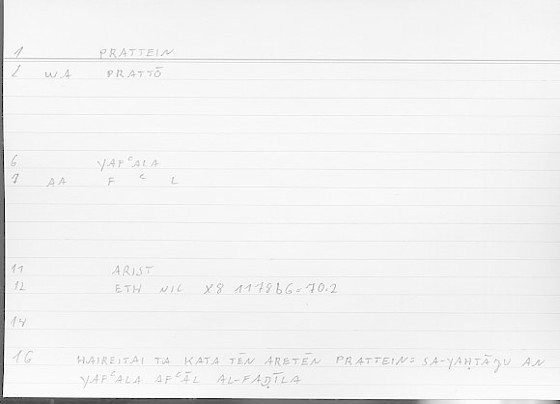 1 PRATTEIN
2 WA PRATTŌ
6 YAFᶜALA
7 AA F ᶜ L
11 ARIST
12 ETH NIC X8 1178b6=70.2
14
16 HAIREITAI TA KATA TĒN ARETĒN PRATTEIN= SA-YAḤTĀǧU AN
YAFᶜALA AFᶜĀL AL-FAḌĪLA